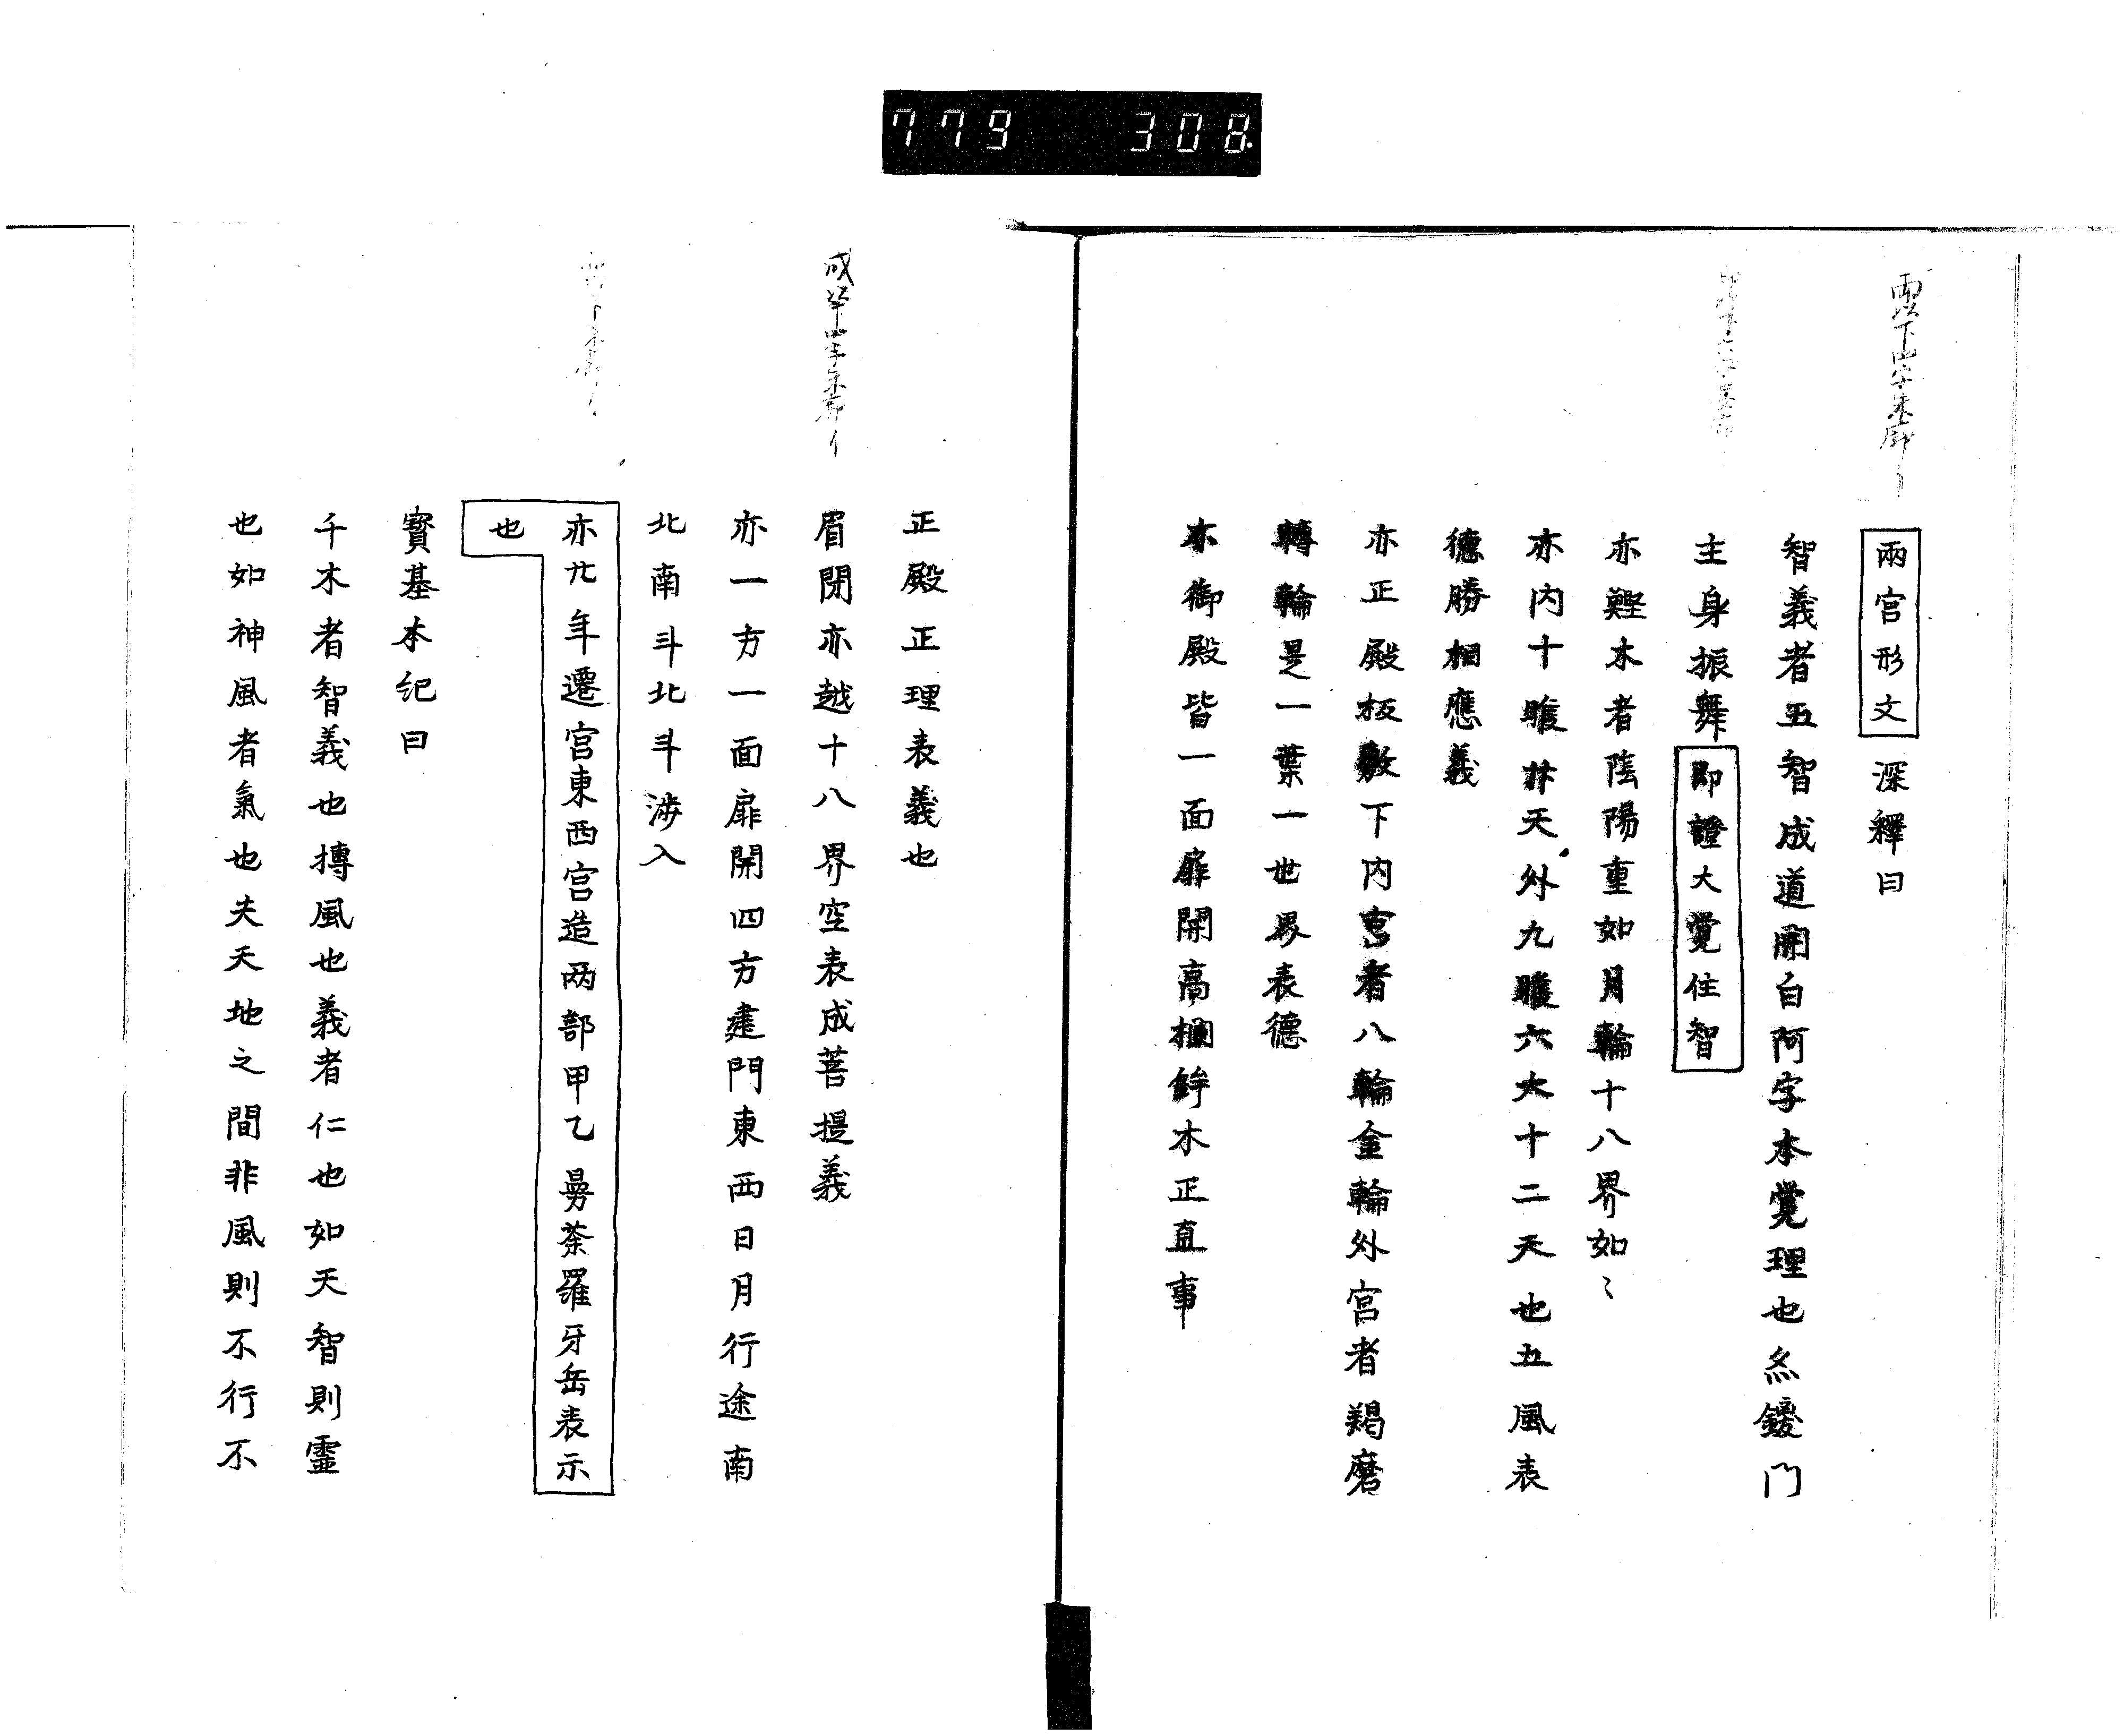 779 308
兩宮形文深釋曰
智義者五智成道開白阿字本覺理也然鑁門
主身振舞即證大覺住智
亦鰹木者陰陽重如月輪十八界如〻
亦內十䨥廾天外九䨥六大十二天也五風表
德勝相應義
亦正殿板敷下內宮者八輪金輪外宮者羯磨
轉輪是一葉一世界表德
亦御殿皆一面扉開高欄鉾木正直事
正殿正理表義也
眉閉亦越十八界空表成菩提義
亦一方一面扉開四方建門東西日月行途南
北南斗北斗涉入
亦廿年遷宮東西宮造兩部甲乙曼荼羅牙岳表示
也
寶基本紀曰
千木者智義也搏風也義者仁也如天智則靈
也如神風者氣也夫天地之間非風則不行不